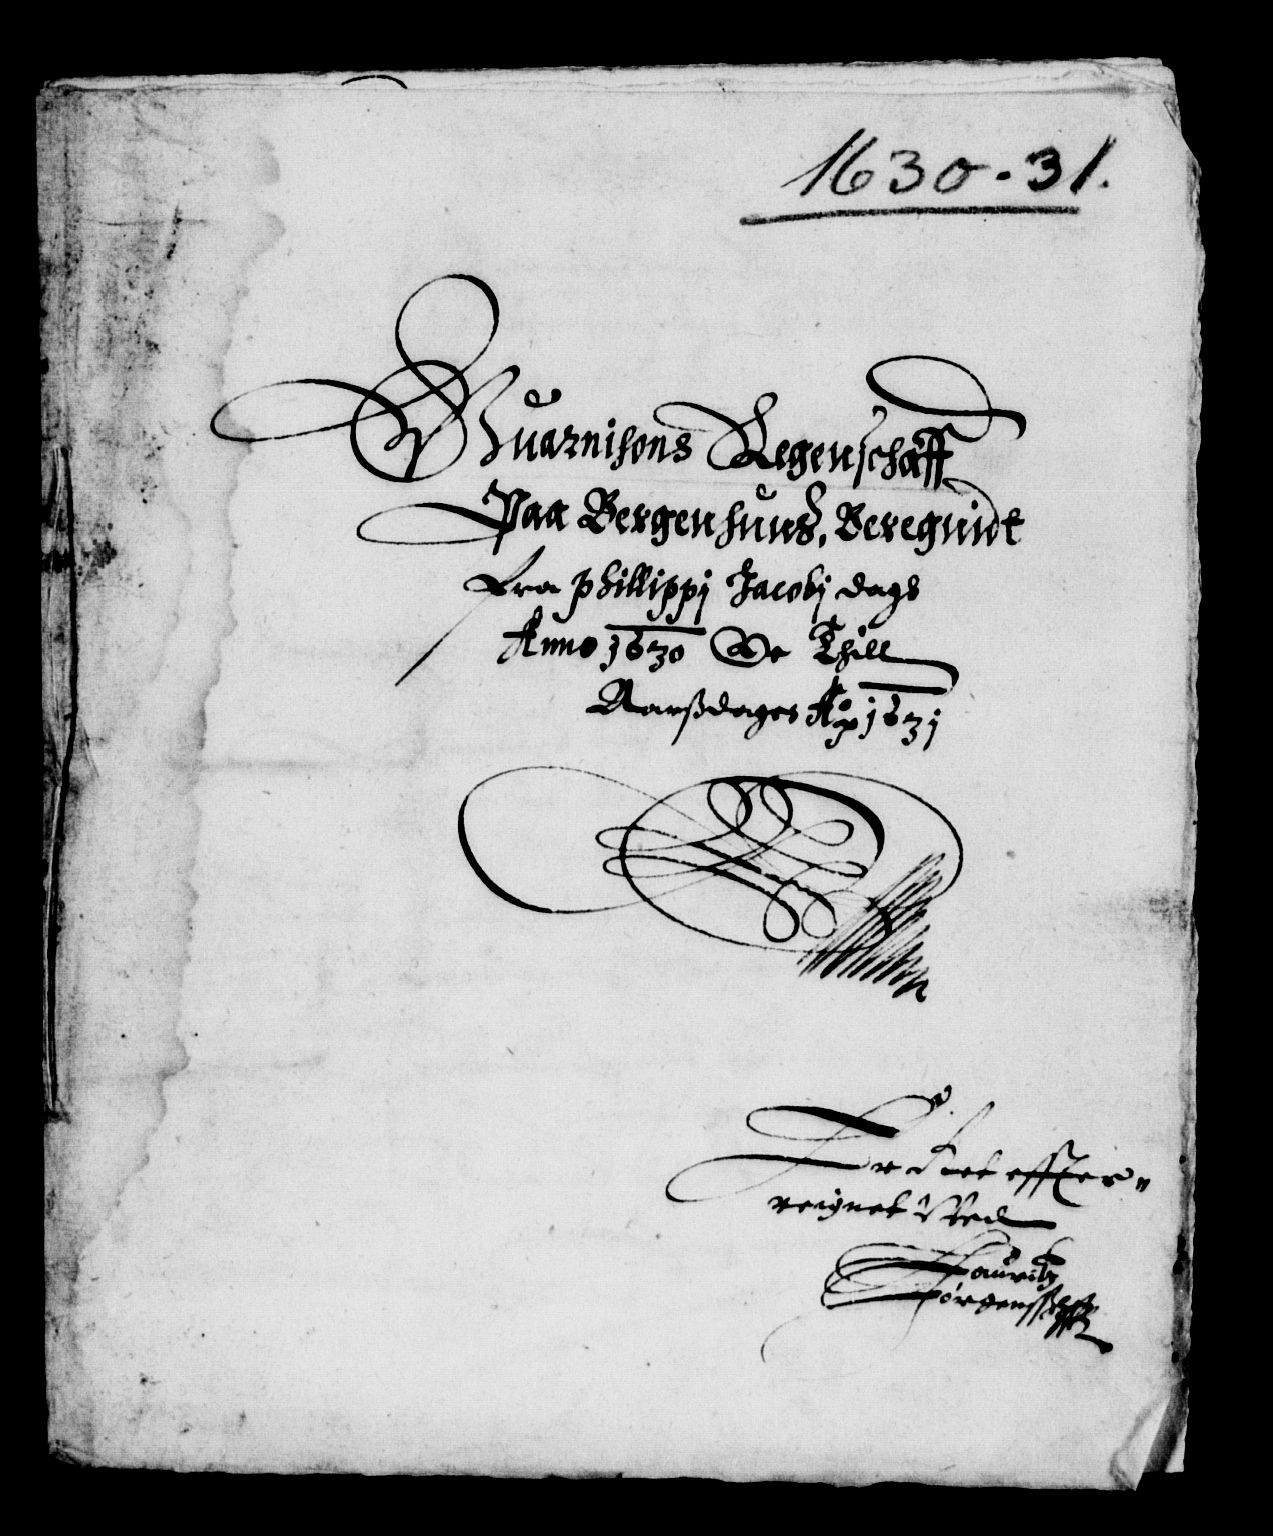 1630-31.
Guarnisons Regenschaff
Paa Bergenhuus, Beregnidt
Fra Phillippj Jacobj dags
Anno 1630 Oc Thill
Aarßdagen Ao 1631
Er Diet effter-
reignet Ved
Lauritz
Jörgenssøn